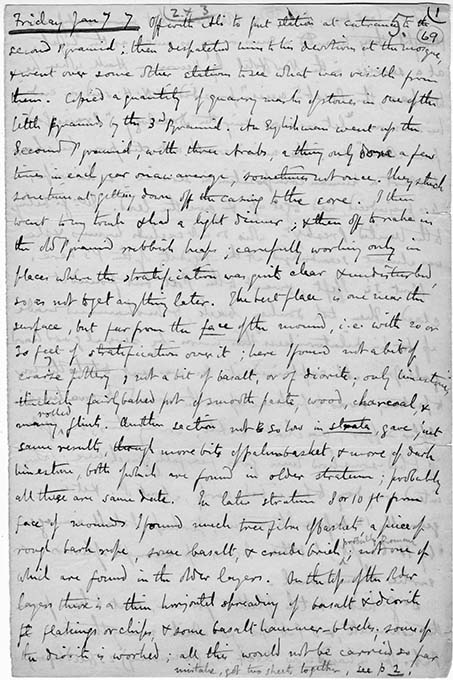 2 & 3
5. (1
Friday Jan 7 7 Off with Ali to put station at entrance to the (69)
second Pyramid; then despatched him to his devotions at the mosque,
& went over some other stations to see what was visible from
them. Copied a quantity of quarry marks of stones in one of the
little Pyramids by the 3rd Pyramid. An Englishman went up the
Second Pyramid, with three Arabs, a thing only done a few
times in each year on an average, sometimes not once. They stuck
sometime at getting down off the casing to the core. I then
went to my tomb & had a light dinner; & then off to rake in
the old Pyramid rubbish heaps; carefully working only in
places where the stratification was quite clear & undisturbed,
so as not to get anything later. The best place is one near the
surface, but far from the face of the mound, i.e. with 20 or
30 feet of stratification over it; here I found not a bit of
coarse pottery, & not a bit of basalt, or of diorite. only limestone,
fairly baked pot of smooth paste, wood, charcoal, &
rolled flint. Another section, not so low in strata, gave just
same results, though more bits of palm basket, & more of dark
limestone, both of which are found in older stratum; probably
all these are same date. In later stratum 8 or 10 ft from
face of mounds I found much tree fibre of basket, a piece of
rough bark rope, some basalt, & crude brick; probably Roman not one of
which are found in the older layers. On the top of the older
layers there is a thin horizontal spreading of basalt & diorite
flakings or chips, & some basalt hammer-blocks. some of
the diorite is worked; all this would not be carried so far
mistake, got two sheets together, see p 2.